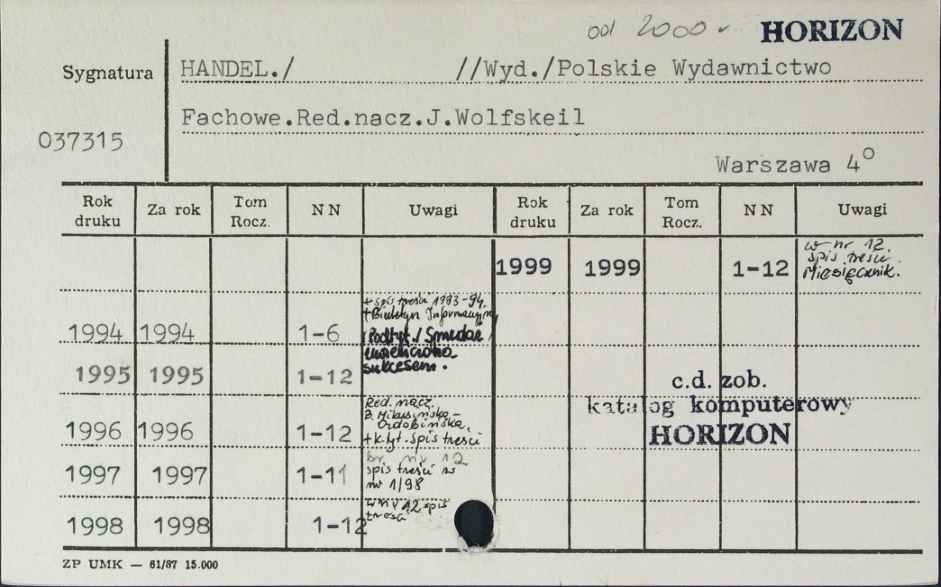 od 2000 HORIZON
Sygnatura HANDEL./ //Wyd./Polskie Wydawnictwo
Fachowe.Red.nacz.J.Wolfskeil
037315
Warszawa 4°
Rok druku Za rok Tom Rocz. N N Uwagi Rok druku Za rok Tom Rocz. N N Uwagi
1999 1999 1-12 w nr 12.
spis treści
Miesięcznik.
+ spis treści 1993-94.
+Biuletyn Informacyjny
1994 1994 1-6 /Podtyt./ Sprzedaż
uwieńczona
sukcesem.
1995 1995 1-12
c.d. zob.
katalog komputerowy
HORIZON
Red. nacz.
1996 1996 1-12
+k.tyt. spis treści
br. nr 12
1997 1997 1-11 spis treści w
nr 1/98
1998 1998 1-12 w nr 12 spis
treści
ZP UMK — 61/87 15.000